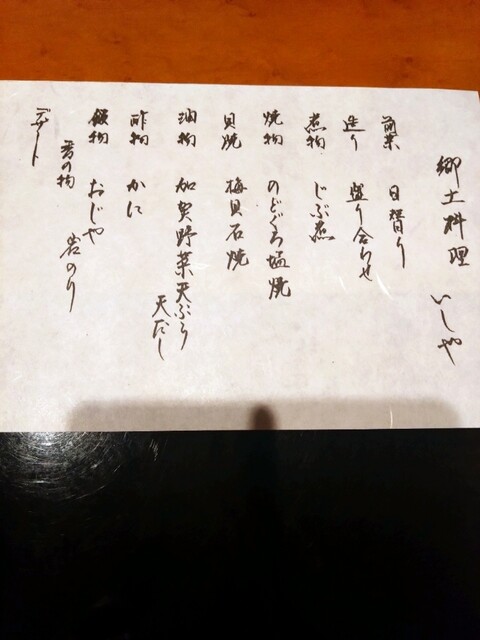 郷土料理 いしや
前菜 日替り
造り 盛り合わせ
煮物 じぶ煮
焼物 のどぐろ塩焼
貝焼 梅貝石焼
油物 加賀野菜天ぷら
天だし
酢物 かに
飯物 おじや 岩のり
香の物
デザート